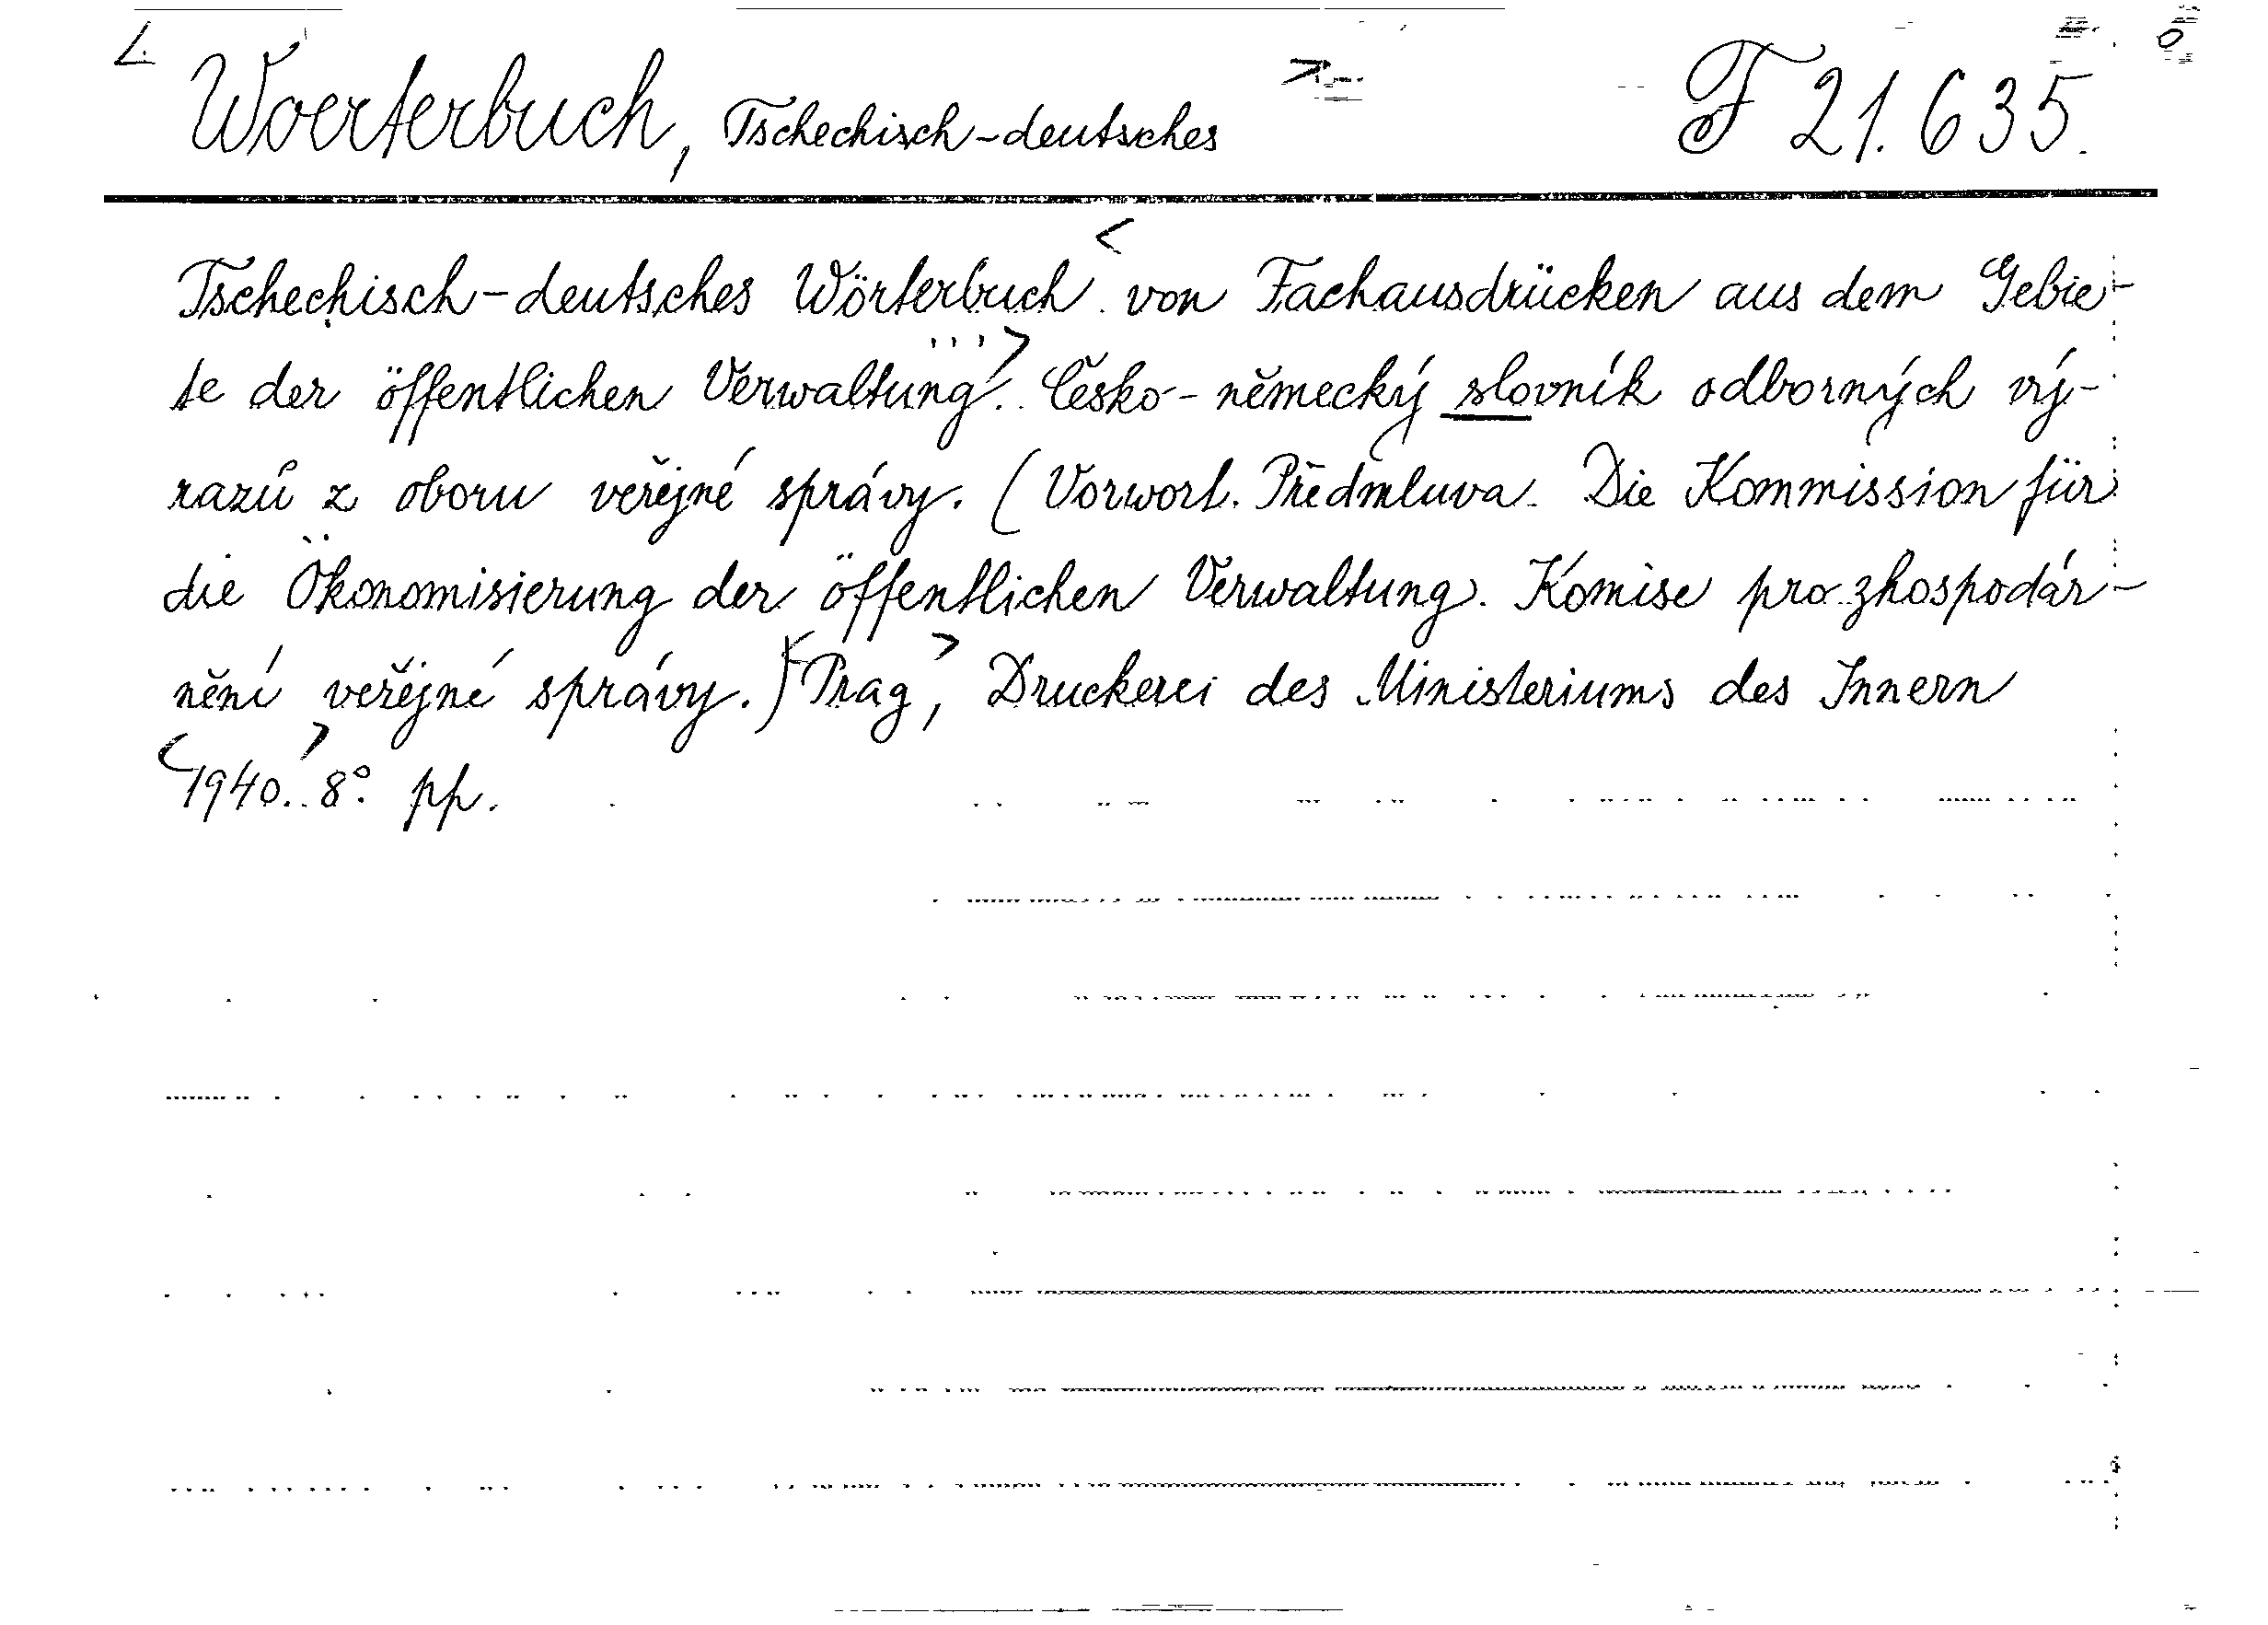 Woerterbuch, Tschechisch-deutsches F 21.635.
Tschechisch-deutsches Wörterbuch von Fachausdrücken aus dem Gebie-
te der öffentlichen Verwaltung... Česko-německý slovník odborných vý-
razů z oboru veřejné správy. (Vorwort. Předmluva. Die Kommission für
die Ökonomisierung der öffentlichen Verwaltung. Komise pro zhospodár-
nění veřejné správy.) Prag, Druckerei des Ministeriums des Innern
1940. 8°. pp.